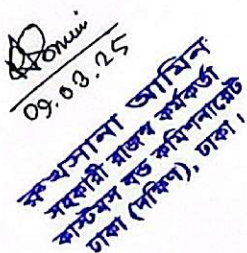 09.03.25
রুখসানা আমিন
সহকারী রাজস্ব কর্মকর্তা
কাস্টমস বন্ড কমিশনারেট
ঢাকা (দক্ষিণ), ঢাকা।